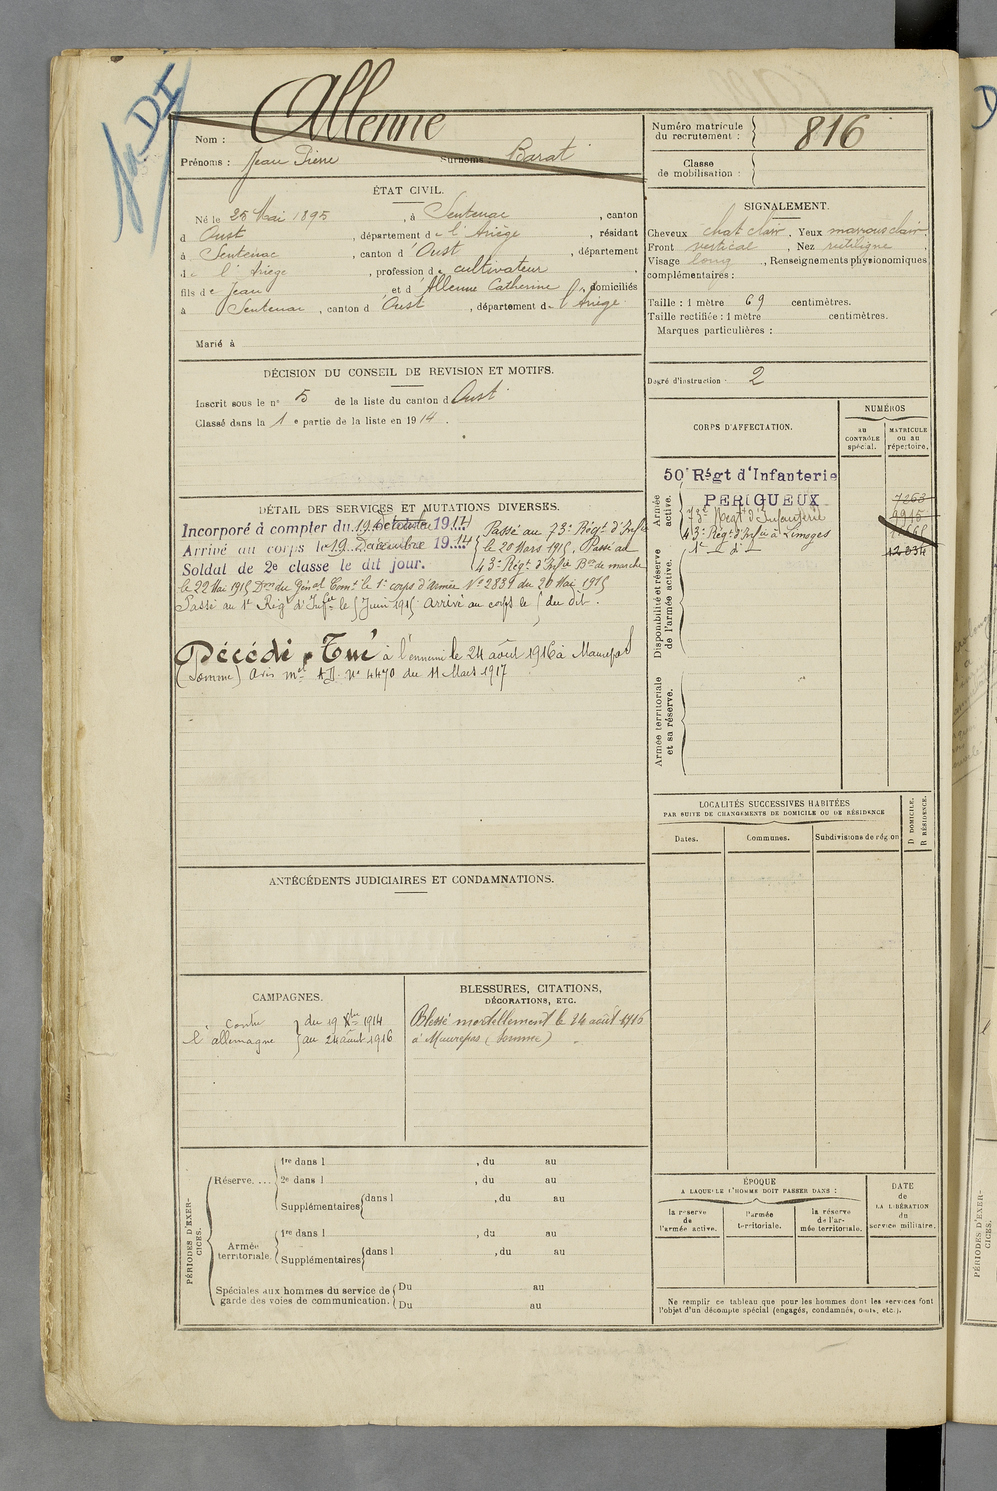 Allenne
Nom :
Prénoms : Jean Pierre Surnoms : Barat
Numéro matricule du recrutement : 816
Classe de mobilisation :
ÉTAT CIVIL.
Né le 25 Mai 1895, à Sentenac, canton
d Oust, département de l'Ariège, résidant
à Sentenac, canton d'Oust, département
de l'Ariège, profession de cultivateur
fils de Jean et d'Allenne Catherine, domiciliés
à Sentenac, canton d'Oust, département de l'Ariège.
Marié à
SIGNALEMENT.
Cheveux chat clair. Yeux marrons clair.
Front vertical, Nez rectiligne
Visage long, Renseignements physionomiques
complémentaires :
Taille : 1 mètre 69 centimètres.
Taille rectifiée : 1 mètre centimètres.
Marques particulières :
Degré d'instruction : 2
DÉCISION DU CONSEIL DE REVISION ET MOTIFS.
Inscrit sous le n° 5 de la liste du canton d Oust
Classé dans la 1e partie de la liste en 1914.
CORPS D'AFFECTATION.
NUMÉROS
au CONTRÔLE spécial.
MATRICULE ou au répertoire.
Armée active.
50e Régt d'Infanterie
PERIGUEUX 7263
73e Régt d'Infanterie 9915
43e Régt d'Infie à Limoges
1er d° d° 12334
Disponibilité et réserve de l'armée active.
Armée territoriale et sa réserve.
DÉTAIL DES SERVICES ET MUTATIONS DIVERSES.
Incorporé à compter du 19 Décembre 1914
Arrivé au corps le 19 Décembre 1914
Soldat de 2e classe le dit jour.
Passé au 73e Régt d'Infie
le 20 Mars 1915, Passé au
43e Régt d'Infie Bon de marche
le 22 Mai 1915 Don du Génal Comt le 1er corps d'armée N° 2839 du 20 Mai 1915
Passé au 1er Régt d'Infie le 5 Juin 1915 Arrivé au corps le 5 du dit.
Décédé, Tué à l'ennemi le 24 août 1916 à Maurepas
(Somme) Avis mel AD. N° 4470 du 11 Mars 1917
LOCALITÉS SUCCESSIVES HABITÉES
PAR SUITE DE CHANGEMENTS DE DOMICILE OU DE RÉSIDENCE
Dates. Communes. Subdivisions de région D DOMICILE. R RÉSIDENCE.
ANTÉCÉDENTS JUDICIAIRES ET CONDAMNATIONS.
CAMPAGNES.
Contre l'allemagne du 19 Xbre 1914
au 24 août 1916
BLESSURES, CITATIONS,
DÉCORATIONS, ETC.
Blessé mortellement le 24 août 1916
à Maurepas (Somme)
PÉRIODES D'EXERCICES.
Réserve.... 1re dans l , du au
2e dans l , du au
Supplémentaires dans l , du au
Armée territoriale. 1re dans l , du au
Supplémentaires dans l , du au
Spéciales aux hommes du service de garde des voies de communication. Du au
Du au
ÉPOQUE
A LAQUELLE L'HOMME DOIT PASSER DANS :
la réserve de l'armée active.
l'armée territoriale.
la réserve de l'armée territoriale.
DATE de LA LIBÉRATION du service militaire.
Ne remplir ce tableau que pour les hommes dont les services font
l'objet d'un décompte spécial (engagés, condamnés, omis, etc.).
PÉRIODES D'EXERCICES.